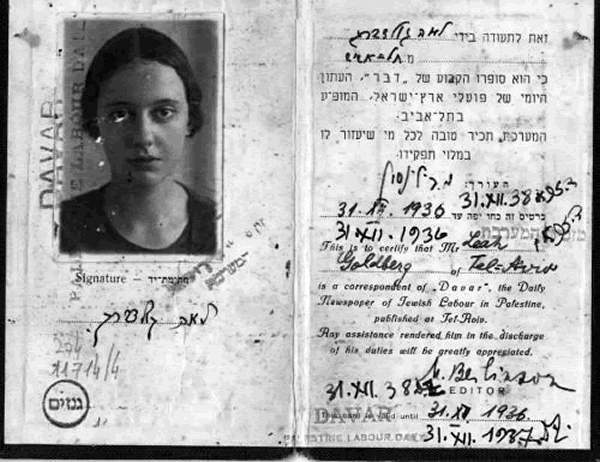 DAVAR
PALESTINE LABOUR DAILY
Signature – חתימת-יד
לאה גולדברג
274
11714/4
גנזים
זאת לתעודה בידי לאה גולדברג
מתל אביב
כי הוא סופרו הקבוע של „דבר”, העתון
היומי של פועלי ארץ-ישראל, המופיע
בתל-אביב.
המערכת תכיר טובה לכל מי שיעזור לו
במלוי תפקידו.
העורך:
31.XII.38
31.XII 1936 כרטיס זה כחו יפה עד
31.XII.1936
This is to certify that Mr Leah
Goldberg of Tel-Aviv
is a correspondent of "Davar", the Daily
Newspaper of Jewish Labour in Palestine,
published at Tel-Aviv.
Any assistance rendered him in the discharge
of his duties will be greatly appreciated.
M. Berlinson
31.XII.38 EDITOR
DAVAR
valid until 31.XII 1936.
PALESTINE LABOUR DAILY
31.XII.1937